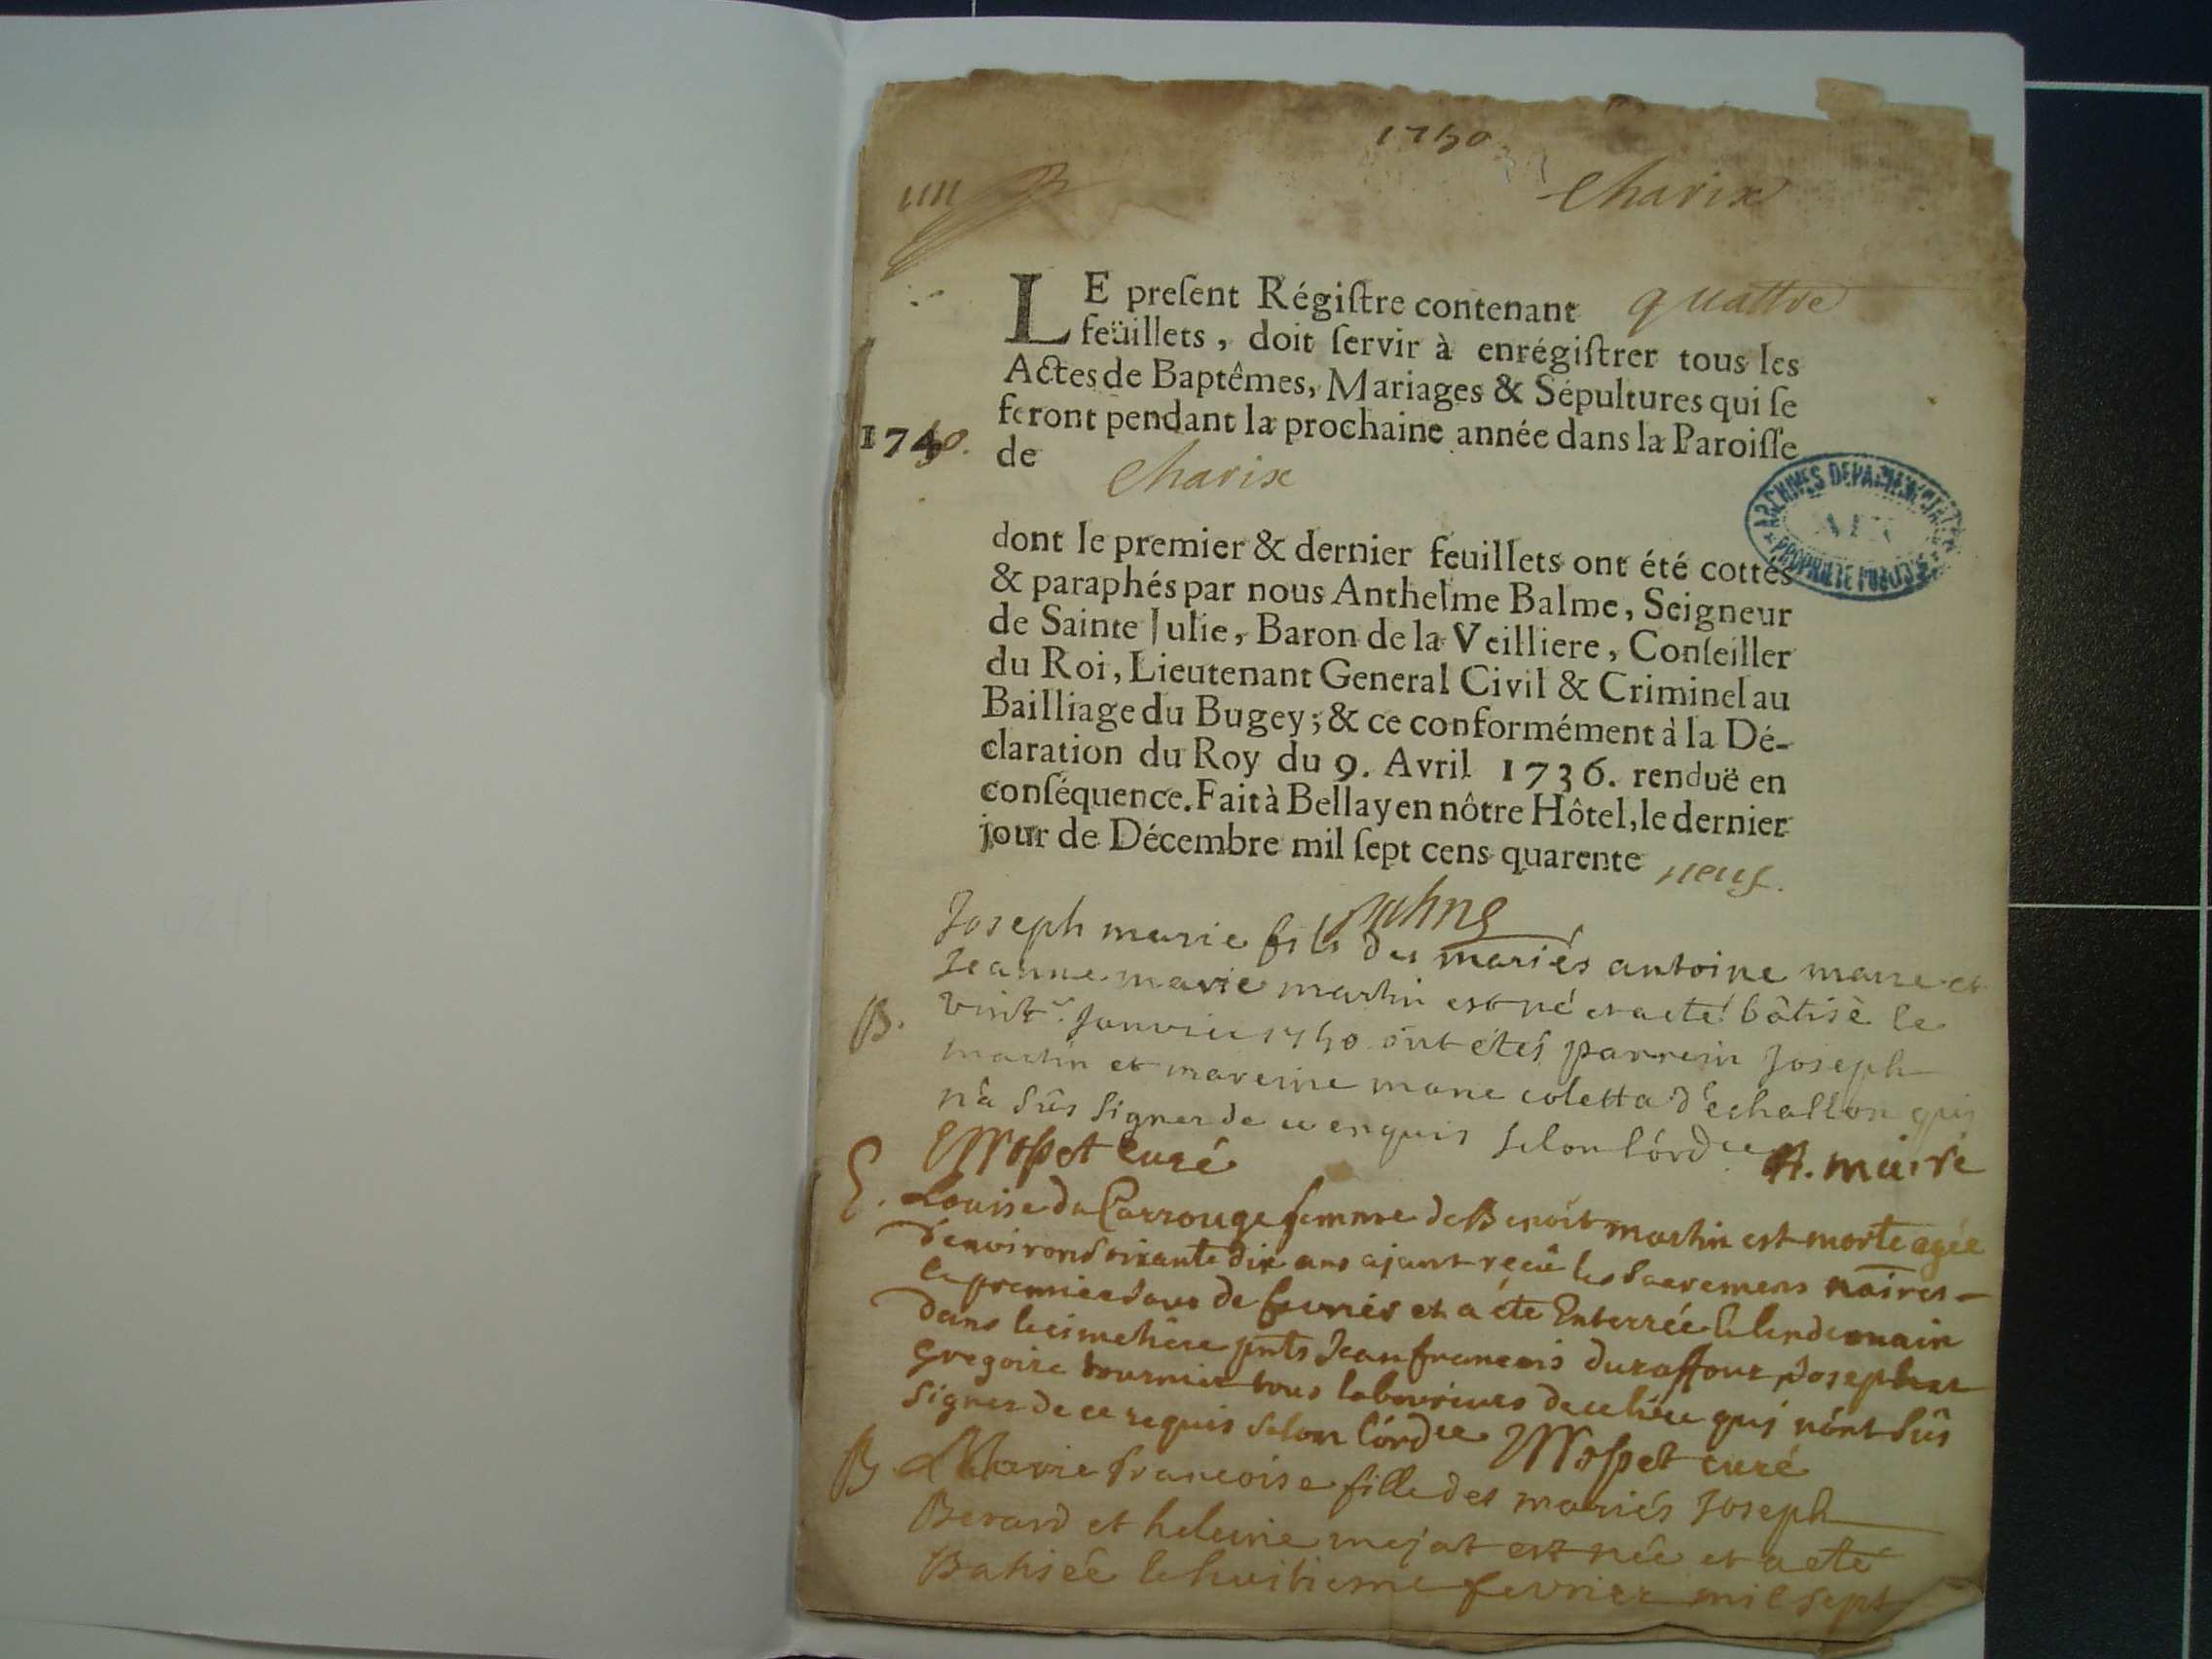 1750
Charix
LE preſent Régiſtre contenant quattre
feüillets, doit ſervir à enrégiſtrer tous les
Actes de Baptêmes, Mariages & Sépultures qui ſe
feront pendant la prochaine année dans la Paroiſſe
1750.
de Charix
ARCHIVES DEPARTEMENTALES
AIN
PROPRIETE PUBLIQUE
dont le premier & dernier feuillets ont été cottés
& paraphés par nous Anthelme Balme, Seigneur
de Sainte Julie, Baron de la Veilliere, Conſeiller
du Roi, Lieutenant General Civil & Criminel au
Bailliage du Bugey; & ce conformément à la Dé-
claration du Roy du 9. Avril 1736. renduë en
conſéquence. Fait à Bellay en nôtre Hôtel, le dernier
jour de Décembre mil ſept cens quarente neuf.
Balme
Joseph marie fils des mariés antoine maire et
Jeanne marie martin est né et a eté bâtisé le
B. vint Janvier 1750 ont étés parrein Joseph
martin et mareine marie coletta d'echallon qui
n'a sûs signer de ce enquis selon l'órdre A. maire
Mospet curé
E. Louise du Carrouge femme de Benoit martin est morte agée
d'environ soixante dix ans ajant reçû les sacremens naires
le premier jour de fevrier et a éte Enterrée le lendemain
dans le cimetiere pnts Jean francois duraffour Joseph et
gregoire tournier tous laboureurs de ce lieu qui n'ont sûs
signer de ce requis selon l'órdre Mospet curé
B Marie francoise fille des mariés Joseph
Berard et heleine mejat est née et a eté
Batisée le huitiesme fevrier mil sept